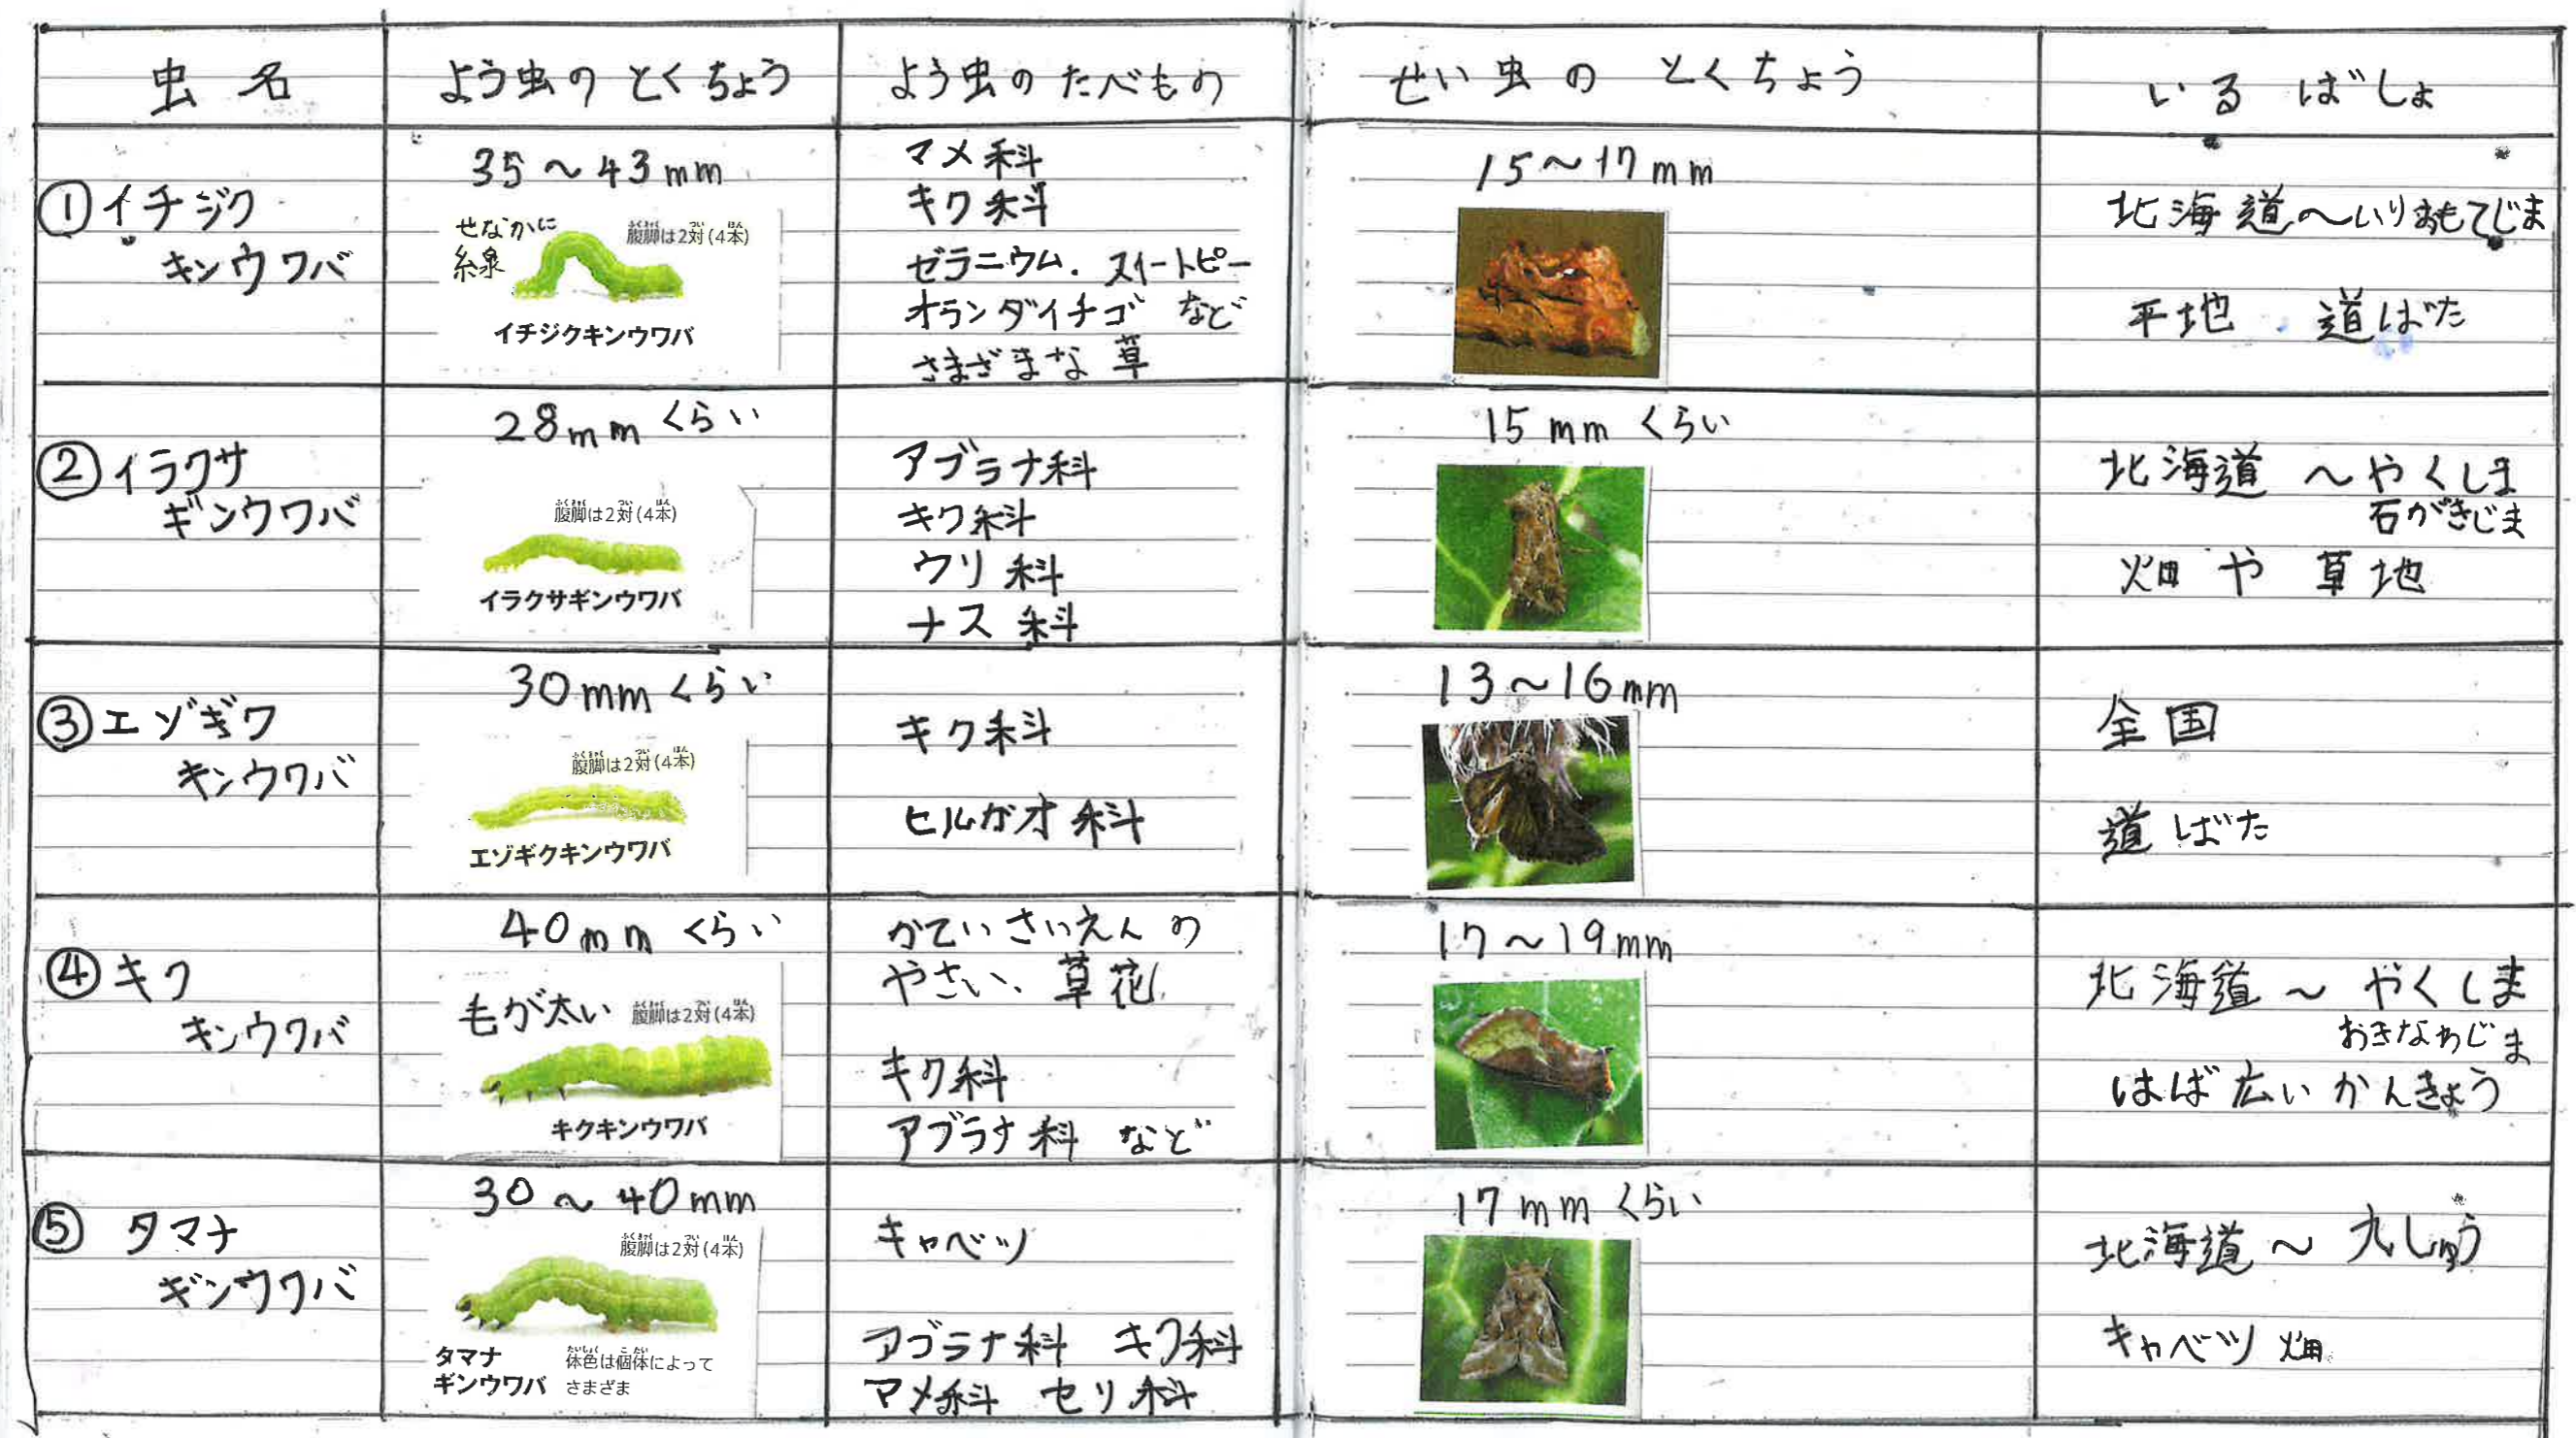 虫名
よう虫のとくちょう
よう虫のたべもの
せい虫のとくちょう
いるばしょ
①イチジク
キンウワバ
35〜43mm
せなかに
線
腹脚は2対(4本)
イチジクキンウワバ
マメ科
キク科
ゼラニウム.スイートピー
オランダイチゴ など
さまざまな草
15〜17mm
北海道〜いりおもてじま
平地 道ばた
②イラクサ
ギンウワバ
28mmくらい
腹脚は2対(4本)
イラクサギンウワバ
アブラナ科
キク科
ウリ科
ナス科
15mmくらい
北海道〜やくしま
石がきじま
畑や草地
③エゾギク
キンウワバ
30mmくらい
腹脚は2対(4本)
エゾギクキンウワバ
キク科
ヒルガオ科
13〜16mm
全国
道ばた
④キク
キンウワバ
40mmくらい
毛が太い
腹脚は2対(4本)
キクキンウワバ
かていさいえんの
やさい、草花
キク科
アブラナ科 など
17〜19mm
北海道〜やくしま
おきなわじま
はば広いかんきょう
⑤タマナ
ギンウワバ
30〜40mm
腹脚は2対(4本)
タマナ
ギンウワバ
体色は個体によって
さまざま
キャベツ
アブラナ科 キク科
マメ科 セリ科
17mmくらい
北海道〜九しゅう
キャベツ畑